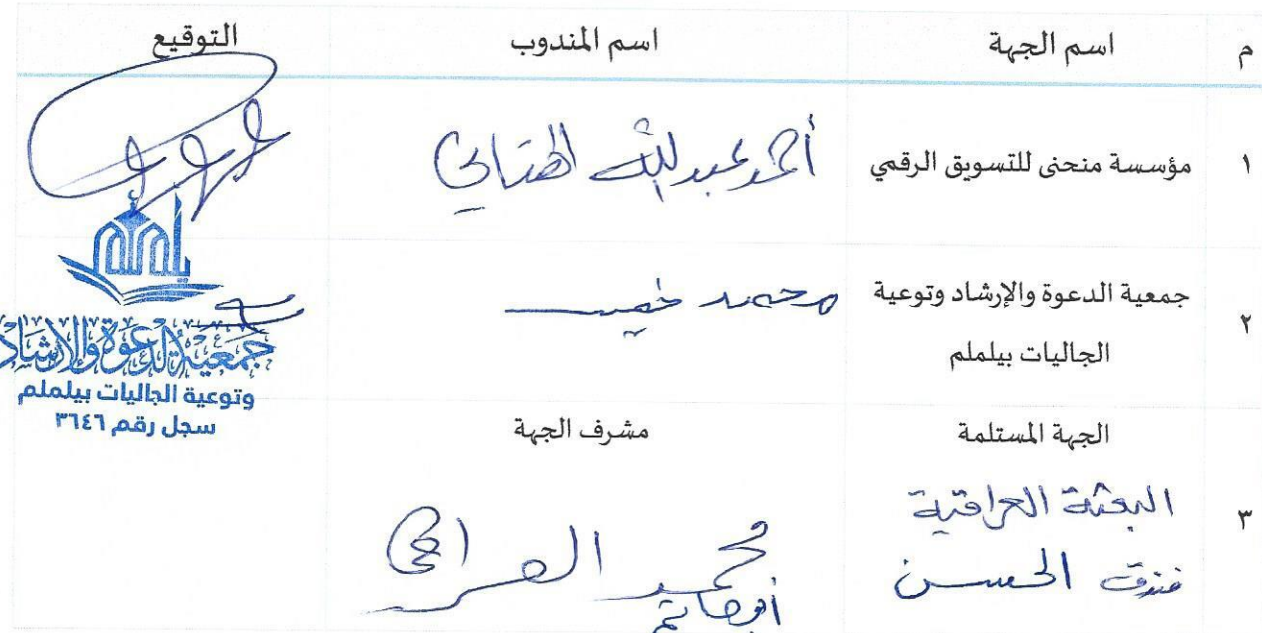 م اسم الجهة اسم المندوب التوقيع
١ مؤسسة منحنى للتسويق الرقمي أحمد عبدالله الهتاني
٢ جمعية الدعوة والإرشاد وتوعية الجاليات بيلملم محمد خميس
جمعية الدعوة والإرشاد
وتوعية الجاليات بيلملم
سجل رقم ٣٦٤٦
الجهة المستلمة مشرف الجهة
٣ البعثة العراقية محمد العراقي
فندق الحسن أبو حاتم